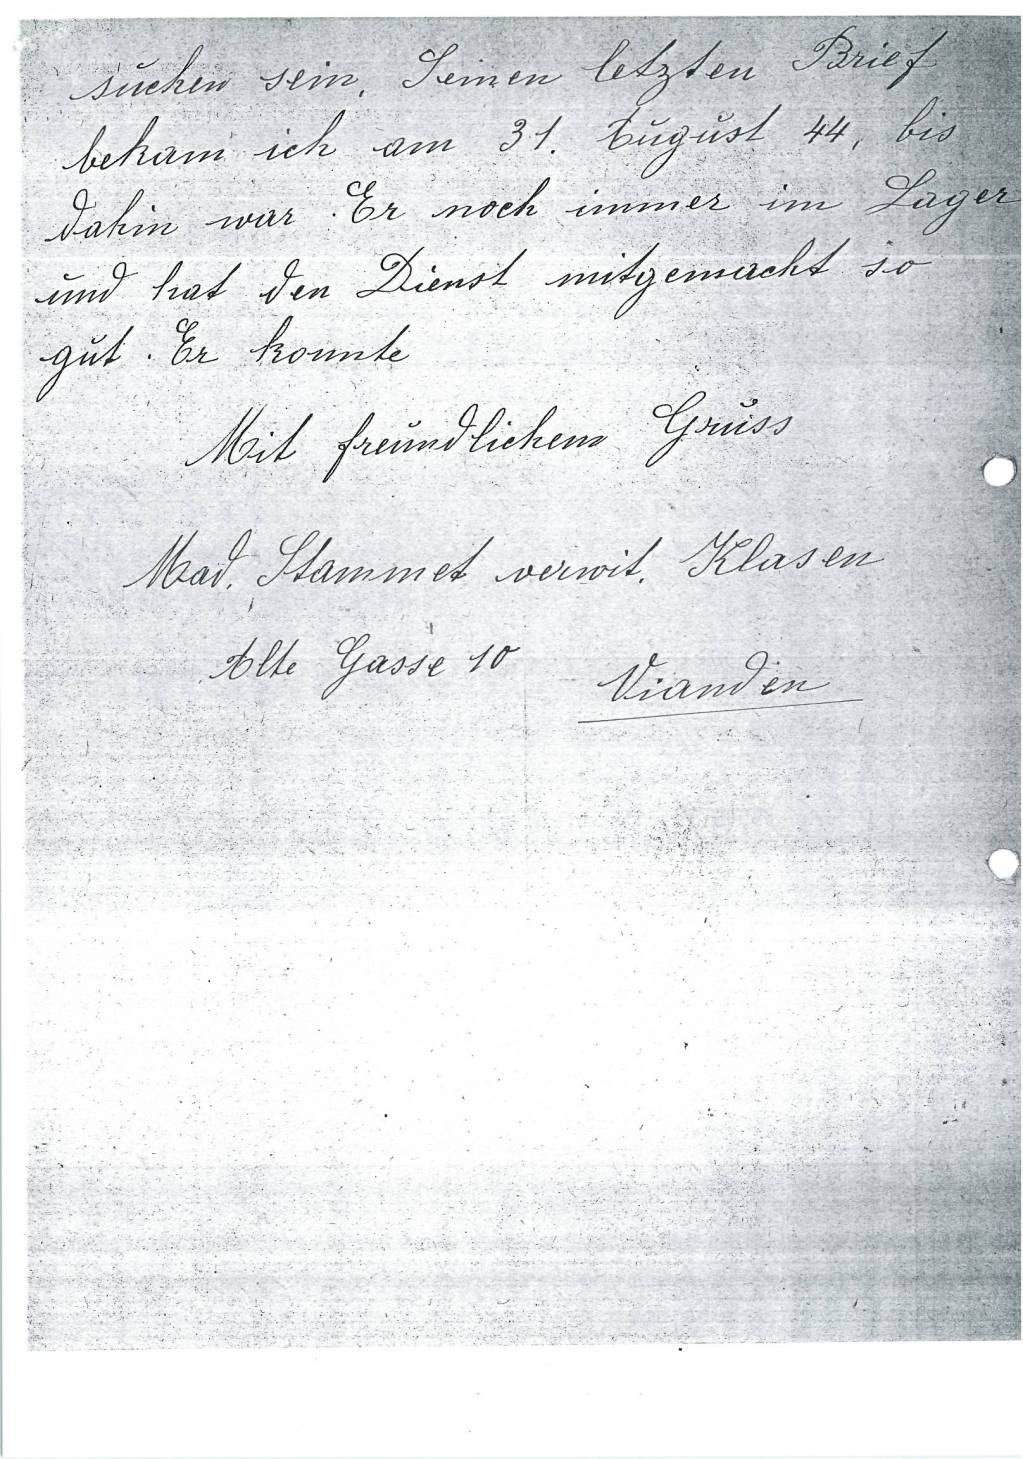 suchen sein. Seinen letzten Brief
bekam ich am 31. August 44, bis
dahin war Er noch immer im Lager
und hat den Dienst mitgemacht so
gut Er konnte
Mit freundlichem Gruss
Mad. Stammet verwit. Klasen
Alte Gasse 10
Vianden